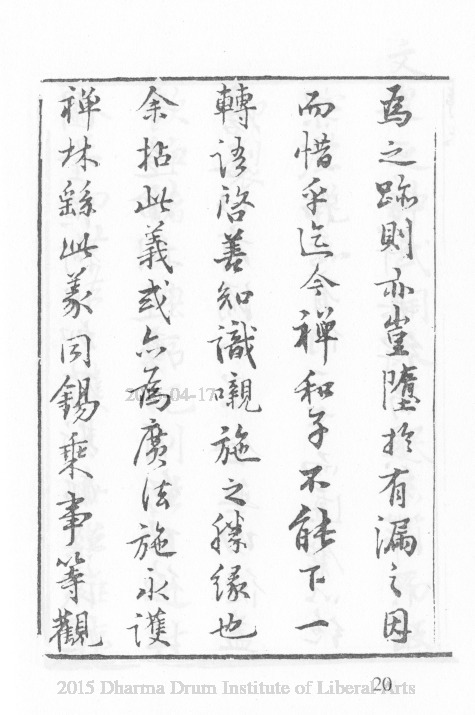 為之跡則亦豈墮於有漏之因
而惜乎迄今禪和子不能下一
轉語啓善知識嚫施之勝緣也
余拈此義或亦為廣法施永護
禪林繇此同錫乘事等觀
20
2015 Dharma Drum Institute of Liberal Arts